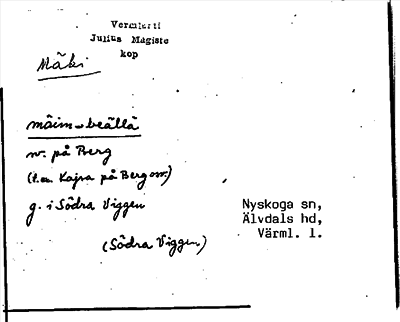 Vermlanti
Julius Mägiste
kop
Mäki
mäim-beällä
n. på Berg
(l.a. Kajsa på Berg om.)
g. i Södra Viggen
(Södra Viggen)
Nyskoga sn,
Älvdals hd,
Värml. l.